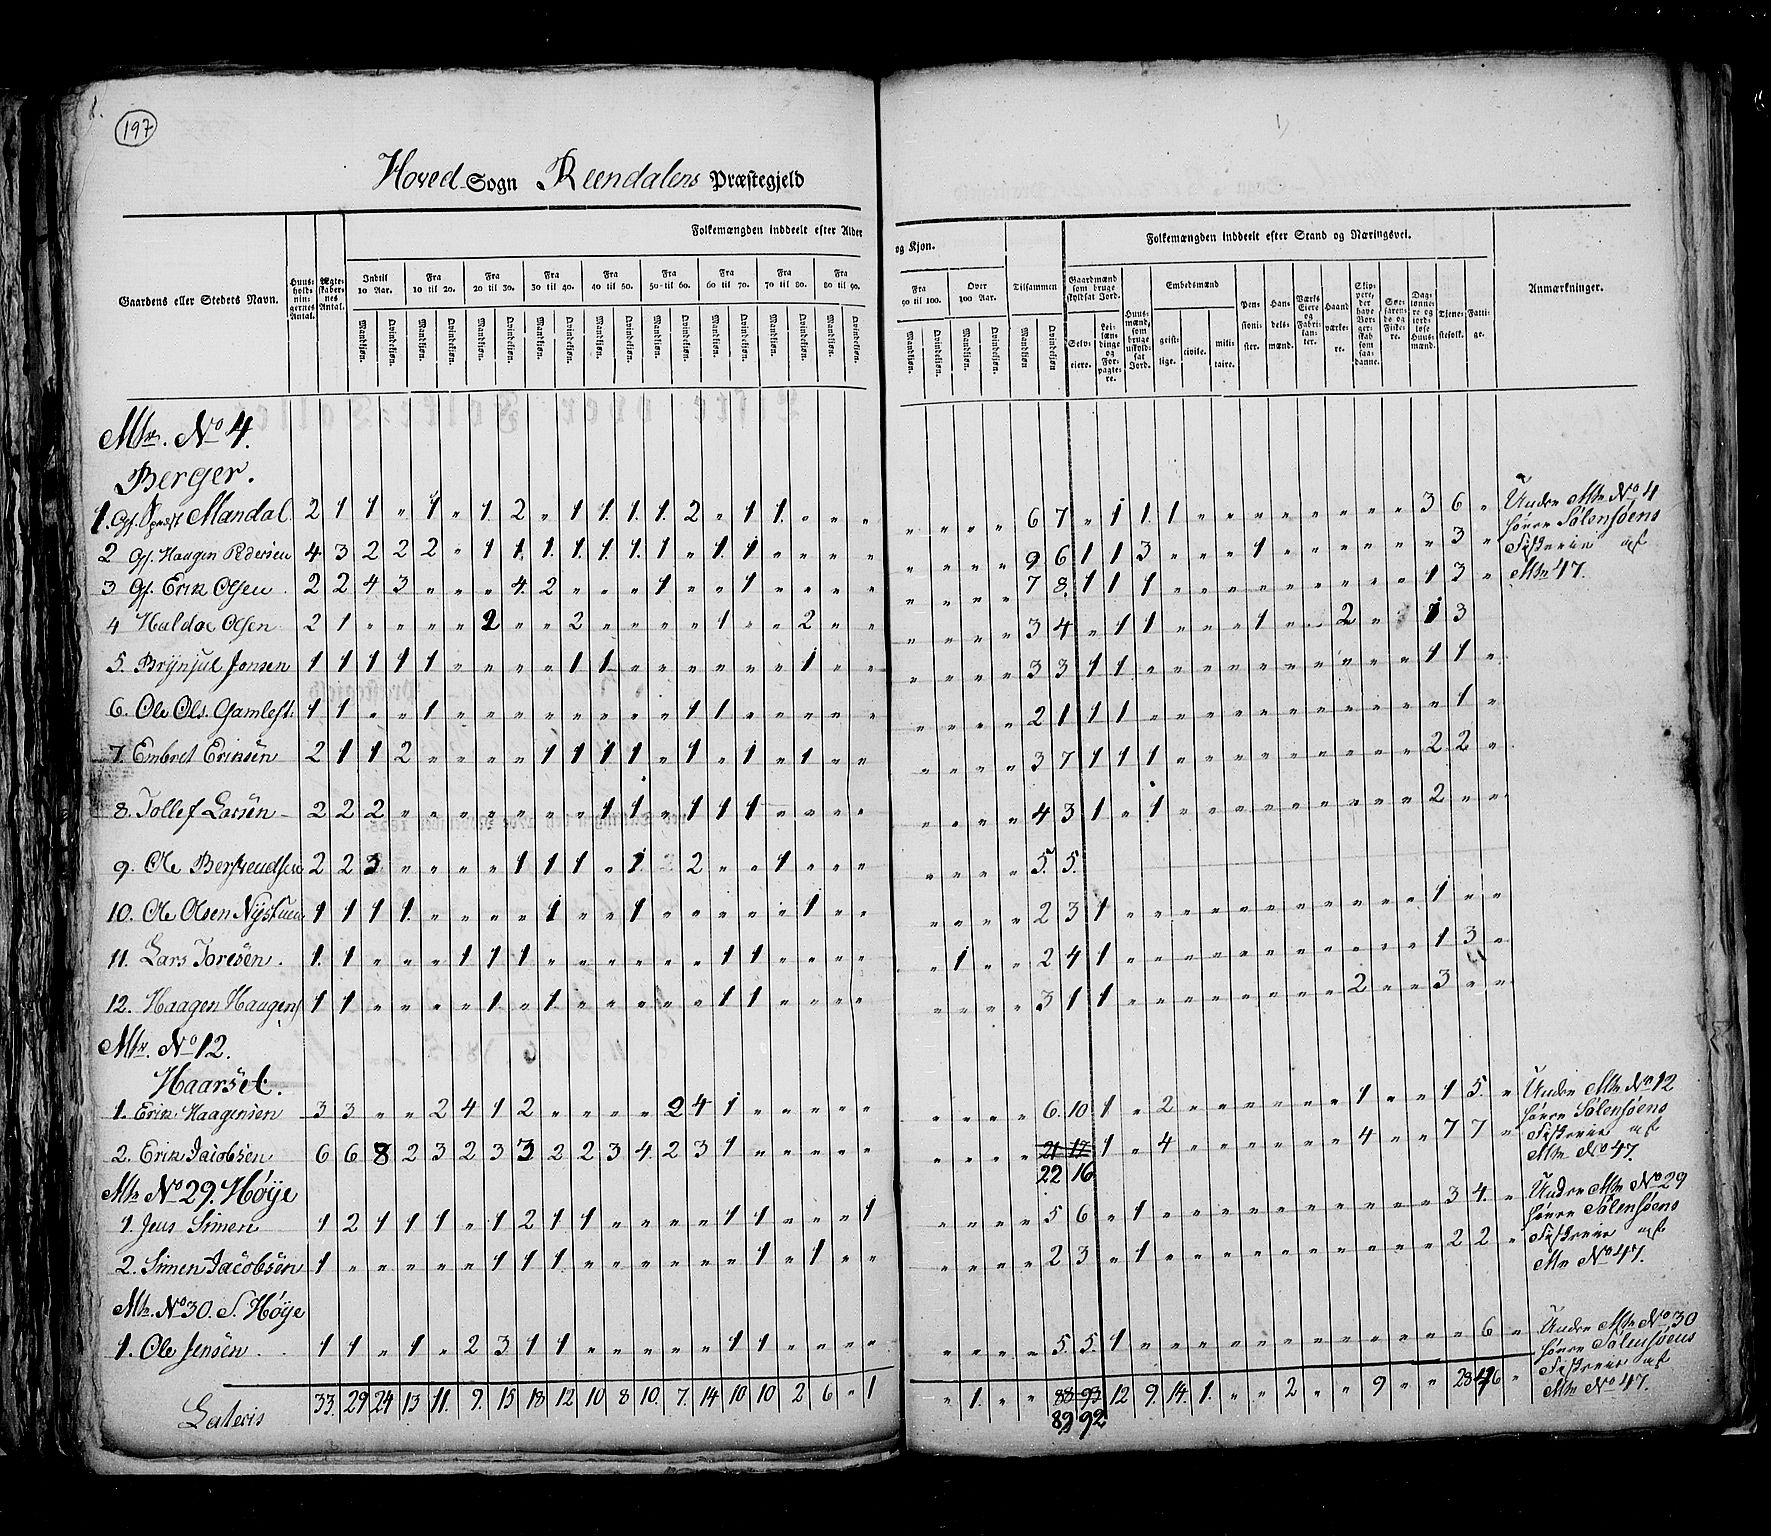 197
Hoved Sogn Reendalens Præstegjeld
Folkemængden inddeelt efter Alder og Kjøn.
Folkemængden inddeelt efter Stand og Næringsvei.
Gaardens eller Stedets Navn.
Huus-hold-nin-gernes Antal.
Ægte-skaber-nes Antal.
Indtil 10 Aar.
Fra 10 til 20.
Fra 20 til 30.
Fra 30 til 40.
Fra 40 til 50.
Fra 50 til 60.
Fra 60 til 70.
Fra 70 til 80.
Fra 80 til 90.
Fra 90 til 100.
Over 100 Aar.
Tilsammen
Mandkjøn. Qvindekjøn.
Gaardmænd som bruge skyldsat Jord.
Selv-eiere.
Lei-lændinge og For-pagte-re.
Huus-mænd, som bruge uskyld-sat Jord.
Embedsmænd
geist-lige.
civile.
mili-taire.
Pen-sioni-ster.
Han-dels-mænd.
Værks Eiere og Fabri-kan-ter.
Haand-værke-re.
Søe-farende og Fiske-re.
Dag-lønne-re og jord-løse Huus-mænd.
Tjene-stefolk.
Fatti-ge.
Anmærkninger.
Mtr. No 4.
Berger.
1. Gf. Mandal. 2 1 1 " 1 " 1 2 " 1 1 1 1 2 " 1 1 " " " " " " " 6 7 " 1 1 1 " " " " " " " " 3 6 "
2 Gf. Haagen Pedersen 4 3 2 2 2 " 1 1 1 1 1 1 1 " 1 1 " " " " " " " " 9 6 1 1 3 " " " 1 " " " " " " 3 "
3 Gf. Erik Olsen 2 2 4 3 " " " 4 2 " " " 1 " " 1 " " " " " " " " 7 8 1 1 1 " " " " " " " " " 1 3 "
4 Haldoe Olsen 2 1 " " " " 2 " " 2 " " " " 1 " " 2 " " " " " " 3 4 " 1 1 " " " 1 " " 2 " 1 3
5. Brynjul Jonsen 1 1 1 1 1 " " " " 1 1 " " " " " " 1 " " " " " " 3 3 1 1 " " " " " " " " " " 1 1 "
6. Ole Ols. Gamlest. 1 1 " " 1 " " " " " " " " 1 1 " " " " " " " " " 2 1 1 1 " " " " " " " " " " " 1 "
7 Embret Eriksen 2 1 1 2 " " " " 1 1 1 1 " 1 " 1 " 1 " " " " " " 3 7 1 1 1 " " " " " " " " " 2 2 "
8. Tollef Larsen 2 2 2 " " " " " " " 1 1 " 1 1 1 " " " " " " " " 4 3 1 " 1 " " " " " " " " " 2 " "
9. Ole 2 2 3 " " " " 1 1 1 " 1 2 " " 1 " " " " " " " 5. 5.
10. Ole Olsen 1 1 1 1 " " " " 1 " " 1 " " " " " 1 " " " " " " 2 3 1 " " " " " " " " " " " 1 " "
11. Lars Toresen. 1 1 " " " 1 1 1 " " " " " " 1 1 " " " " " 1 " " 2 4 1 " " " " " " " " " " " 1 3 "
12. Haagen Haagens 1 1 " " " " 1 " 1 " " " " " 1 1 " " " " " " " " 3 1 1 " " " " " " " " 2 " " 3 " "
Mtr. No 12.
Haarset.
1. Erik Haagensen 3 3 " " 2 4 1 2 " " " " 2 4 1 " " " " " " " " " 6. 10 1 " 2 " " " " " " 1 " " 1 5. "
2. Erik Jacobsen 6 6 8 2 3 2 3 3 2 2 3 4 2 3 1 " " " " " " " " " 21 17 1 " 4 " " " " " " 4 " " 7 7 "
22 16
Mtr No 29. Høije
1. Jens Simen 1 2 1 1 1 " 1 2 1 1 " " " " 1 1 " " " 1 " " " " 5 6 " 1 " " " " " " " " " " 3 4. "
2. Simen Jacobsen 1 " " " " " 1 1 1 " " " " " " 1 " 1 " " " " " " 2 3 " 1 " " " " " " " " " " 2 2 "
Mtr. No 30. S. Høije
1. Ole Jensen 1 1 " 1 " 2 3 1 1 " " " " " 1 1 " " " " " " " " 5. 5. 1 " " " " " " " " " " " " 6 "
Lateris 33. 29 24 13 11. 9. 15 18 12 10 8 10. 7. 14 10 10 2 6 " 1 " 1. " " 88 93 12 9. 14. 1. " " 2 " " 9 " " 28 46 "
89 92
Under Mtr No 4
hører Sølensøens
Fiskerie af
Mtr 47.
Under Mtr No 12
hører Sølensøens
Fiskerie af
Mtr No 47.
Under Mtr No 29
hører Sølensøens
Fiskerie af
Mtr No 47.
Under Mtr No 30
hører Sølensøens
Fiskerie af
Mtr No 47.